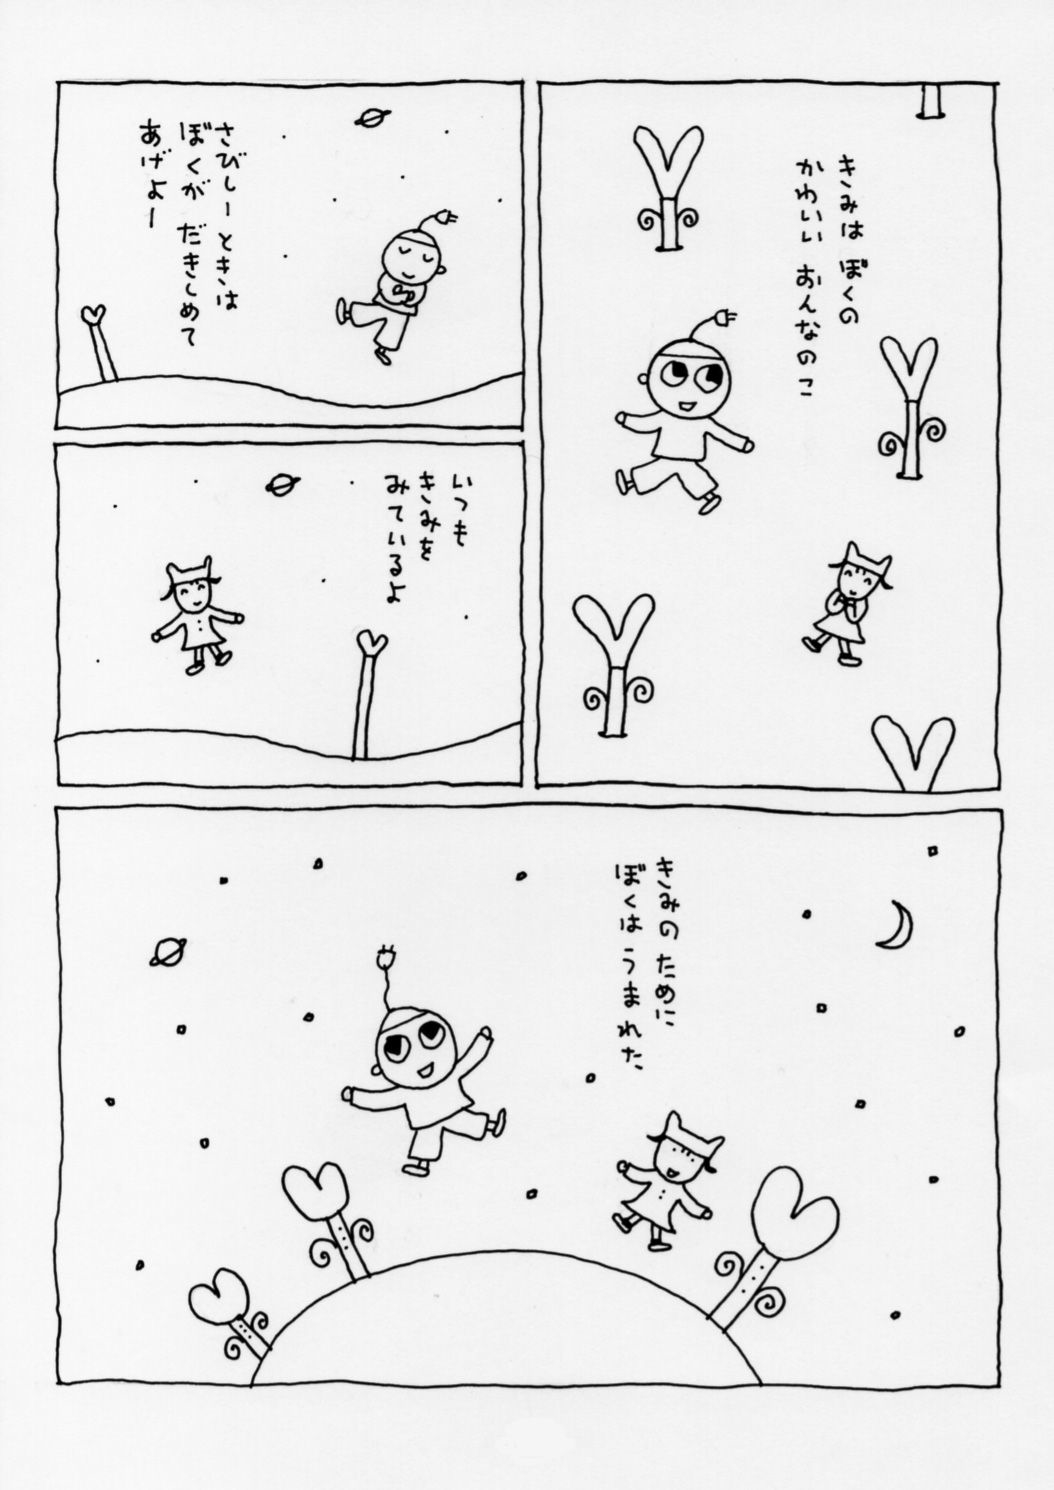 きみは ぼくの
かわいい おんなのこ
さびしーときは
ぼくが だきしめて
あげよー
いつも
きみを
みているよ
きみの ために
ぼくは うまれた